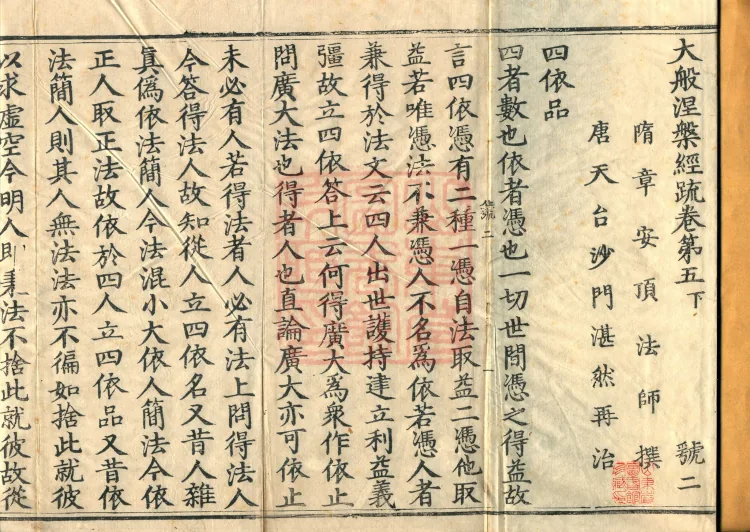 大般涅槃經疏卷第五下 號二
隋章安頂法師撰
唐天台沙門湛然再治
四依品
四者數也依者憑也一切世間憑之得益故
言四依憑有二種一憑自法取益二憑他取
益若唯憑法不兼憑人不名爲依若憑人者
兼得於法文云四人出世護持建立利益義
彊故立四依答上云何得廣大爲衆作依止
問廣大法也得者人也直論廣大亦可依止
未必有人若得法者人必有法上問得法人
今答得法人故知從人立四依名又昔人雜
眞僞依法簡人今法混小大依人簡法今依
正人取正法故依於四人立四依品又昔依
法簡人則其人無法法亦不徧如捨此就彼
以求虛空今明人即秉法不捨此就彼故從